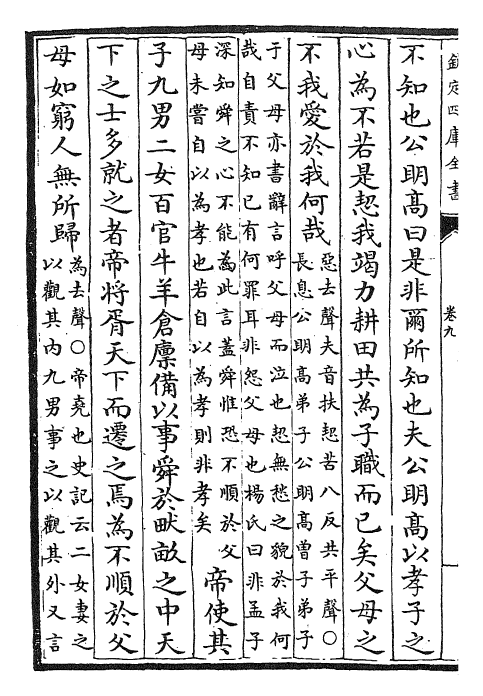 欽定四庫全書
卷九
不知也公明髙曰是非爾所知也夫公明髙以孝子之
心為不若是恝我竭力耕田共為子職而已矣父母之
不我愛於我何哉惡去聲夫音扶恝苦八反共平聲○
長息公明髙弟子公明髙曾子弟子
于父母亦書辭言呼父母而泣也恝無愁之貌於我何
哉自責不知已有何罪耳非怨父母也楊氏曰非孟子
深知舜之心不能為此言蓋舜惟恐不順於父
母未嘗自以為孝也若自以為孝則非孝矣
帝使其
子九男二女百官牛羊倉廪備以事舜於畎畝之中天
下之士多就之者帝將胥天下而遷之焉為不順於父
母如窮人無所歸為去聲○帝堯也史記云二女妻之
以觀其内九男事之以觀其外又言